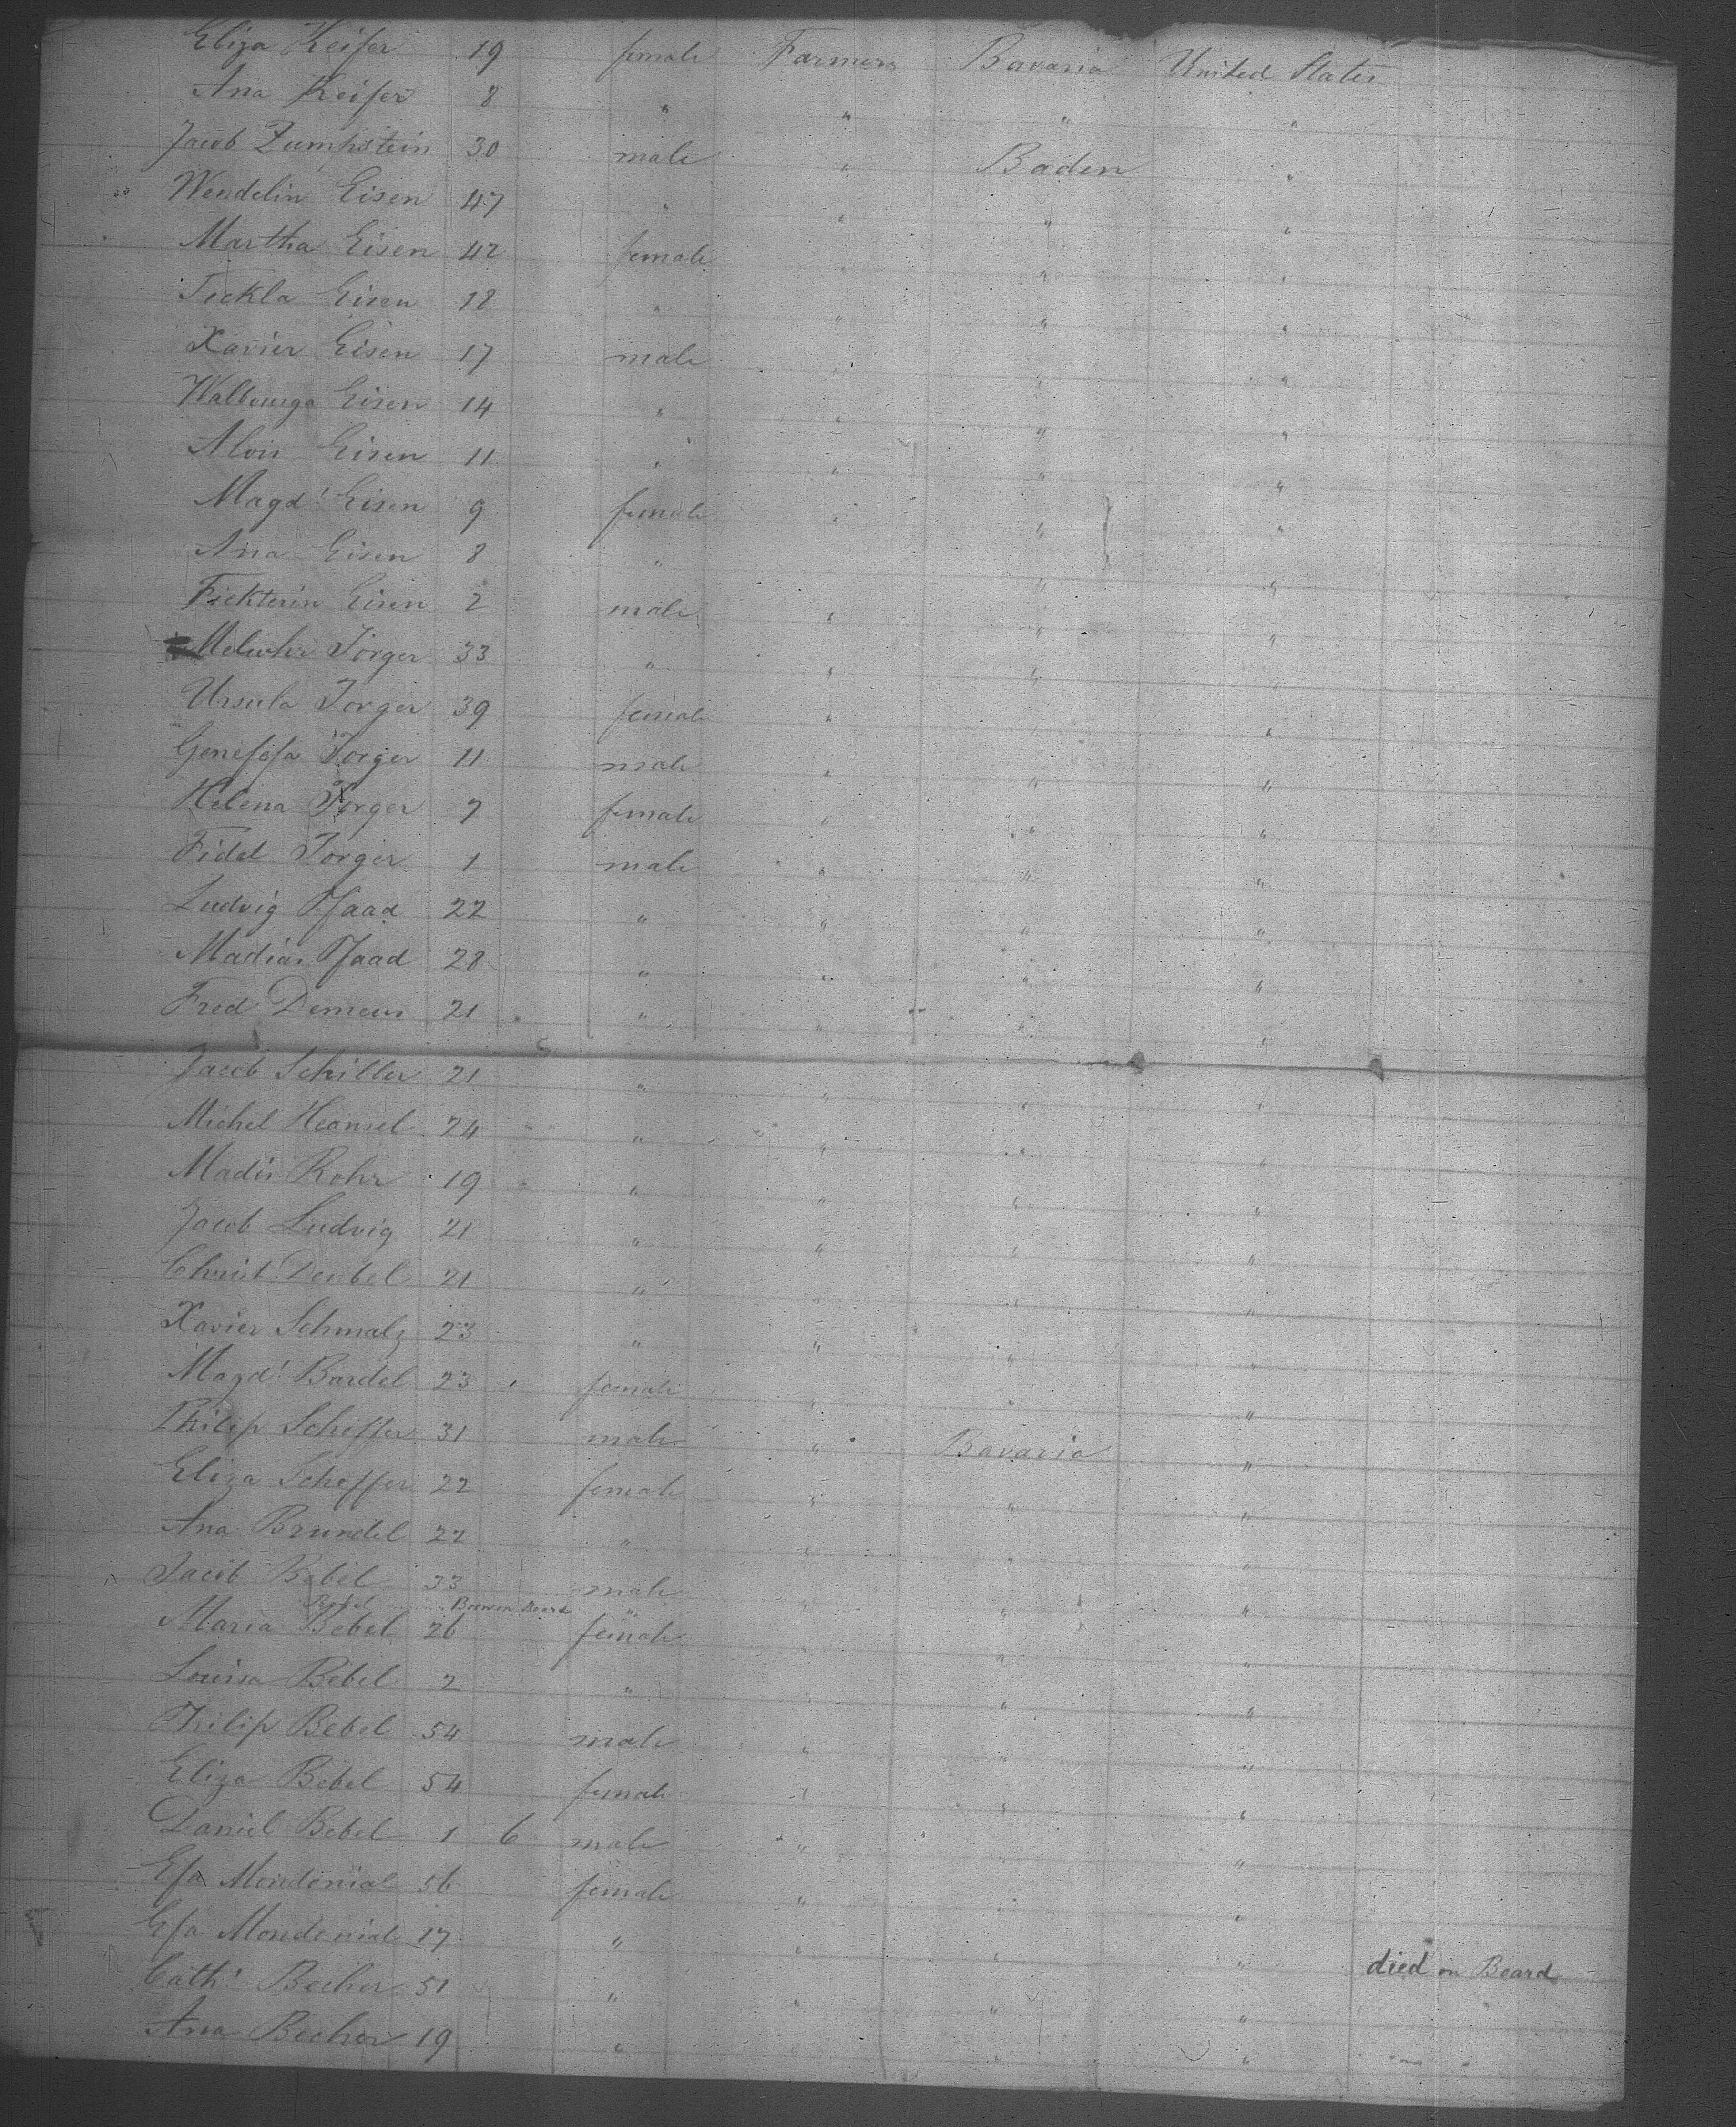 Eliza Keifer 19 female Farmers Bavaria United States
Ana Keifer 8 " " " "
Jacob Zumpstein 30 male " Baden "
Wendelin Eisen 47 " " " "
Martha Eisen 42 female " " "
Teckla Eisen 18 " " " "
Xavier Eisen 17 male " " "
Walbourga Eisen 14 " " " "
Alois Eisen 11 " " " "
Magd! Eisen 9 female " " "
Ana Eisen 8 " " "
Eisen 2 male " " "
Torger 33 " " " "
Ursula Torger 39 female " " "
Genefofa Torger 11 male " " "
Helena Torger 7 female " " "
Fidel Torger 1 male " " "
Ludvig Pfaad 22 " " " "
Madias Pfaad 28 " " " "
Fred Demeus 21 " " " "
Jacob Schiller 21 " " " "
Michel Heansel 24 " " " "
Madis Rohr 19 " " " "
Jacob Ludvig 21 " " " "
Christ Deubel 21 " " " "
Xavier Schmalz 23 " " " "
Magd! Bardel 23 female " " "
Philip Scheffer 31 male " Bavaria "
Eliza Scheffer 22 female " " "
Ana Brundel 22 " " " "
Jacob Bebel 33 male " " "
Bebel Born on Board "
Maria Bebel 26 female " " "
Louisa Bebel 2 " " " "
Philip Bebel 54 male " " "
Eliza Bebel 54 female " " "
Daniel Bebel 1 6 male " "
Efa Mondenial 56 female " " "
Efa Mondenial 17 " " " " died on Board
Cath! Becher 51 " " " "
Ana Becher 19 " " "